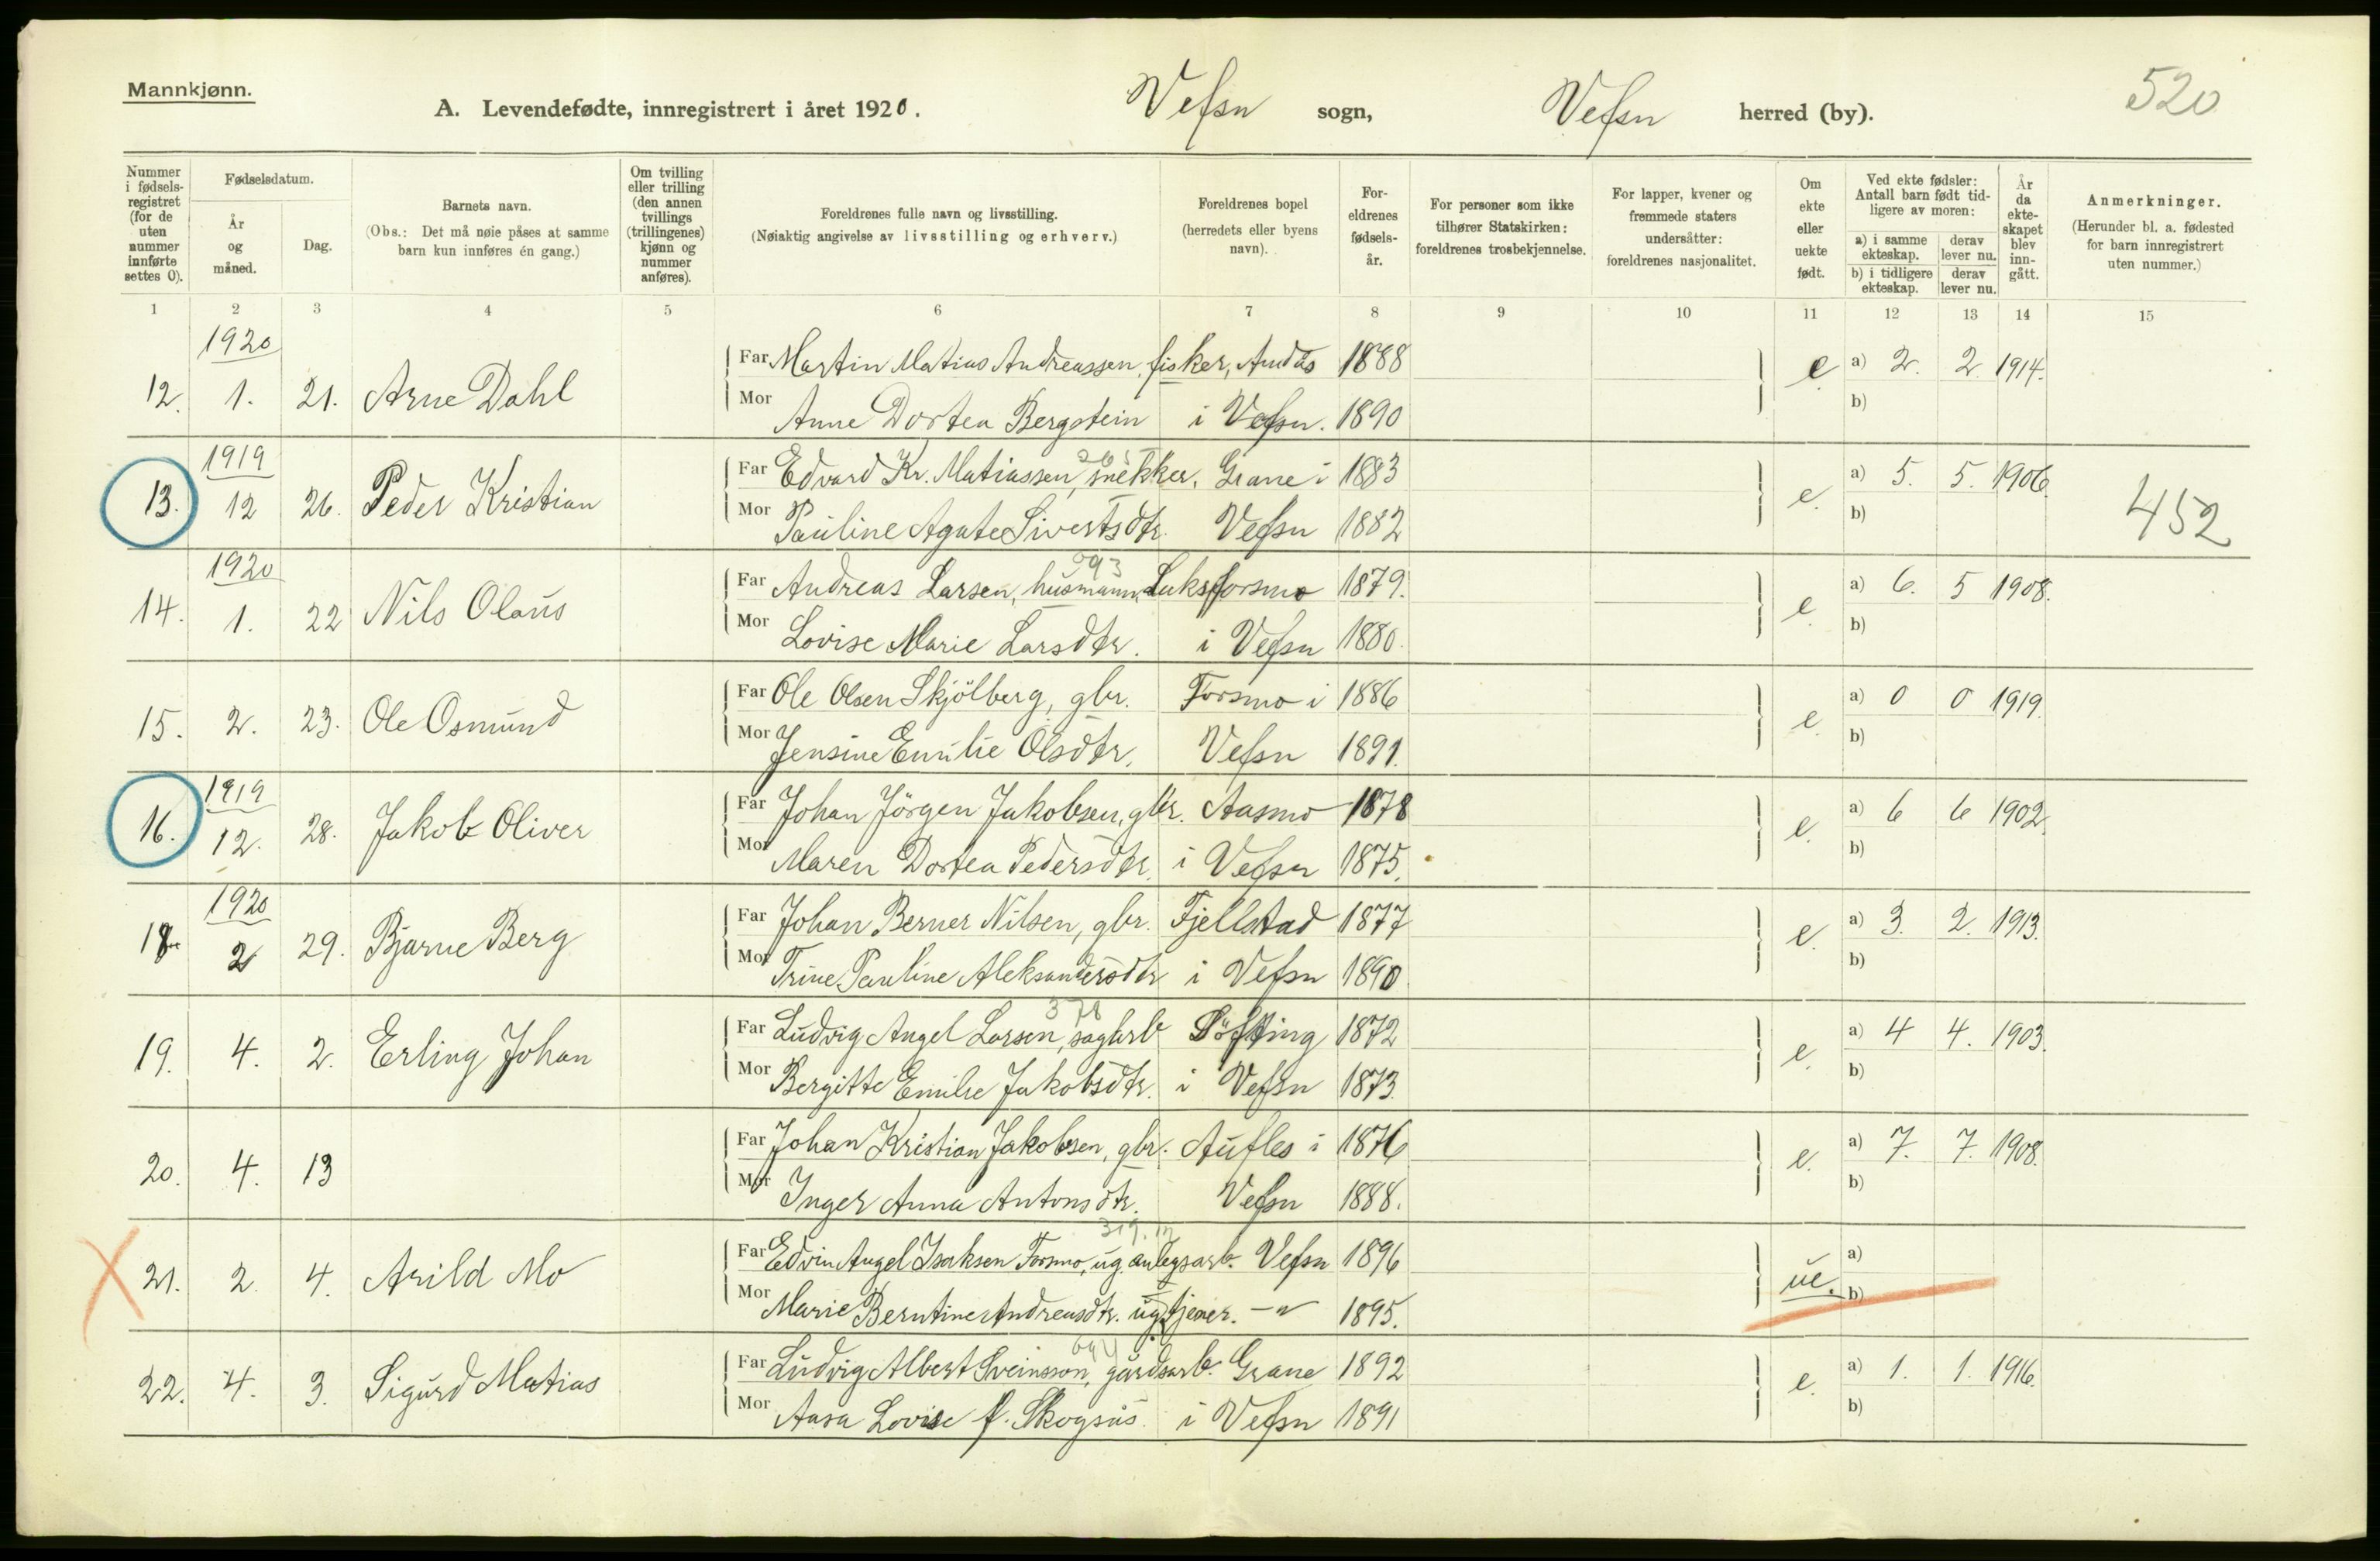 Mannkjønn.
A. Levendefødte, innregistrert i året 1920. Vefsn sogn, Vefsn herred (by). 520
Nummer i fødsels-registret (for de uten nummer innførte settes 0).
Fødselsdatum.
År og måned.
Dag.
Barnets navn.
(Obs.: Det må nøie påses at samme barn kun innføres én gang.)
Om tvilling eller trilling (den annen tvillings (trillingenes) kjønn og nummer anføres).
Foreldrenes fulle navn og livsstilling.
(Nøiaktig angivelse av livsstilling og erhverv.)
Foreldrenes bopel (herredets eller byens navn).
For-eldrenes fødsels-år.
For personer som ikke tilhører Statskirken: foreldrenes trosbekjennelse.
For lapper, kvener og fremmede staters undersåtter: foreldrenes nasjonalitet.
Om ekte eller uekte født.
Ved ekte fødsler: Antall barn født tid-ligere av moren:
a) i samme ekteskap. derav lever nu.
b) i tidligere ekteskap. derav lever nu.
År da ekte-skapet blev inn-gått.
Anmerkninger.
(Herunder bl. a. fødested for barn innregistrert uten nummer.)
1 2 3 4 5 6 7 8 9 10 11 12 13 14 15
1920
12. 1. 21. Arne Dahl Far Martin Matias Andreassen, fisker, Andås 1888 e a) 2. 2. 1914.
Mor Anne Dortea Bergstein i Vefsn. 1890 b)
1919
13. 12 26. Peder Kristian Far Edvard Kr. Matiassen, snekker, Grane i 1883 e. a) 5. 5. 1906. 452
Mor Pauline Agate Sivertsdtr. Vefsn 1882 b)
1920
14. 1. 22 Nils Olaus Far Andreas Larsen, husmann, Laksforsmo 1879. e. a) 6. 5 1908.
693
Mor Lovise Marie Larsdtr. i Vefsn 1880. b)
15. 2. 23. Ole Osmund Far Ole Olsen Skjölberg, gbr. Forsmo i 1886 e. a) 0 0 1919.
Mor Jensine Emilie Olsdtr. Vefsn 1891. b)
1919
16. 12. 28. Jakob Oliver Far Johan Jörgen Jakobsen, gbr. Aasmo 1878 e. a) 6 6 1902.
Mor Maren Dortea Pedersdtr. i Vefsn 1875. b)
1920
18. 2 29. Bjarne Berg Far Johan Berner Nilsen, gbr. Fjellstad 1877 e. a) 3. 2. 1913.
Mor Trine Pauline Aleksandersdtr i Vefsn 1890 b)
378
19. 4. 2. Erling Johan Far Ludvig Angel Larsen, sagarb Söfting 1872 e. a) 4 4. 1903.
Mor Bergitte Emilie Jakobsdtr. i Vefsn 1873. b)
20. 4. 13 Far Johan Kristian Jakobsen, gbr. Aufles i 1876 e. a) 7. 7. 1908.
Mor Inger Anna Antonsdtr. Vefsn 1888. b)
21. 2. 4. Arild Mo Far Edvin Angel Isaksen Forsmo, ug. anlegsarb. Vefsn 1896 ue. a)
Mor Marie Berntine Andreasdtr. ug. tjener. — " 1895. b)
694
22. 4. 3. Sigurd Matias Far Ludvig Albert Sveinsson, gårdsarb. Grane 1892 e. a) 1. 1. 1916.
Mor Aasa Lovise f. Skogsås i Vefsn 1891 b)